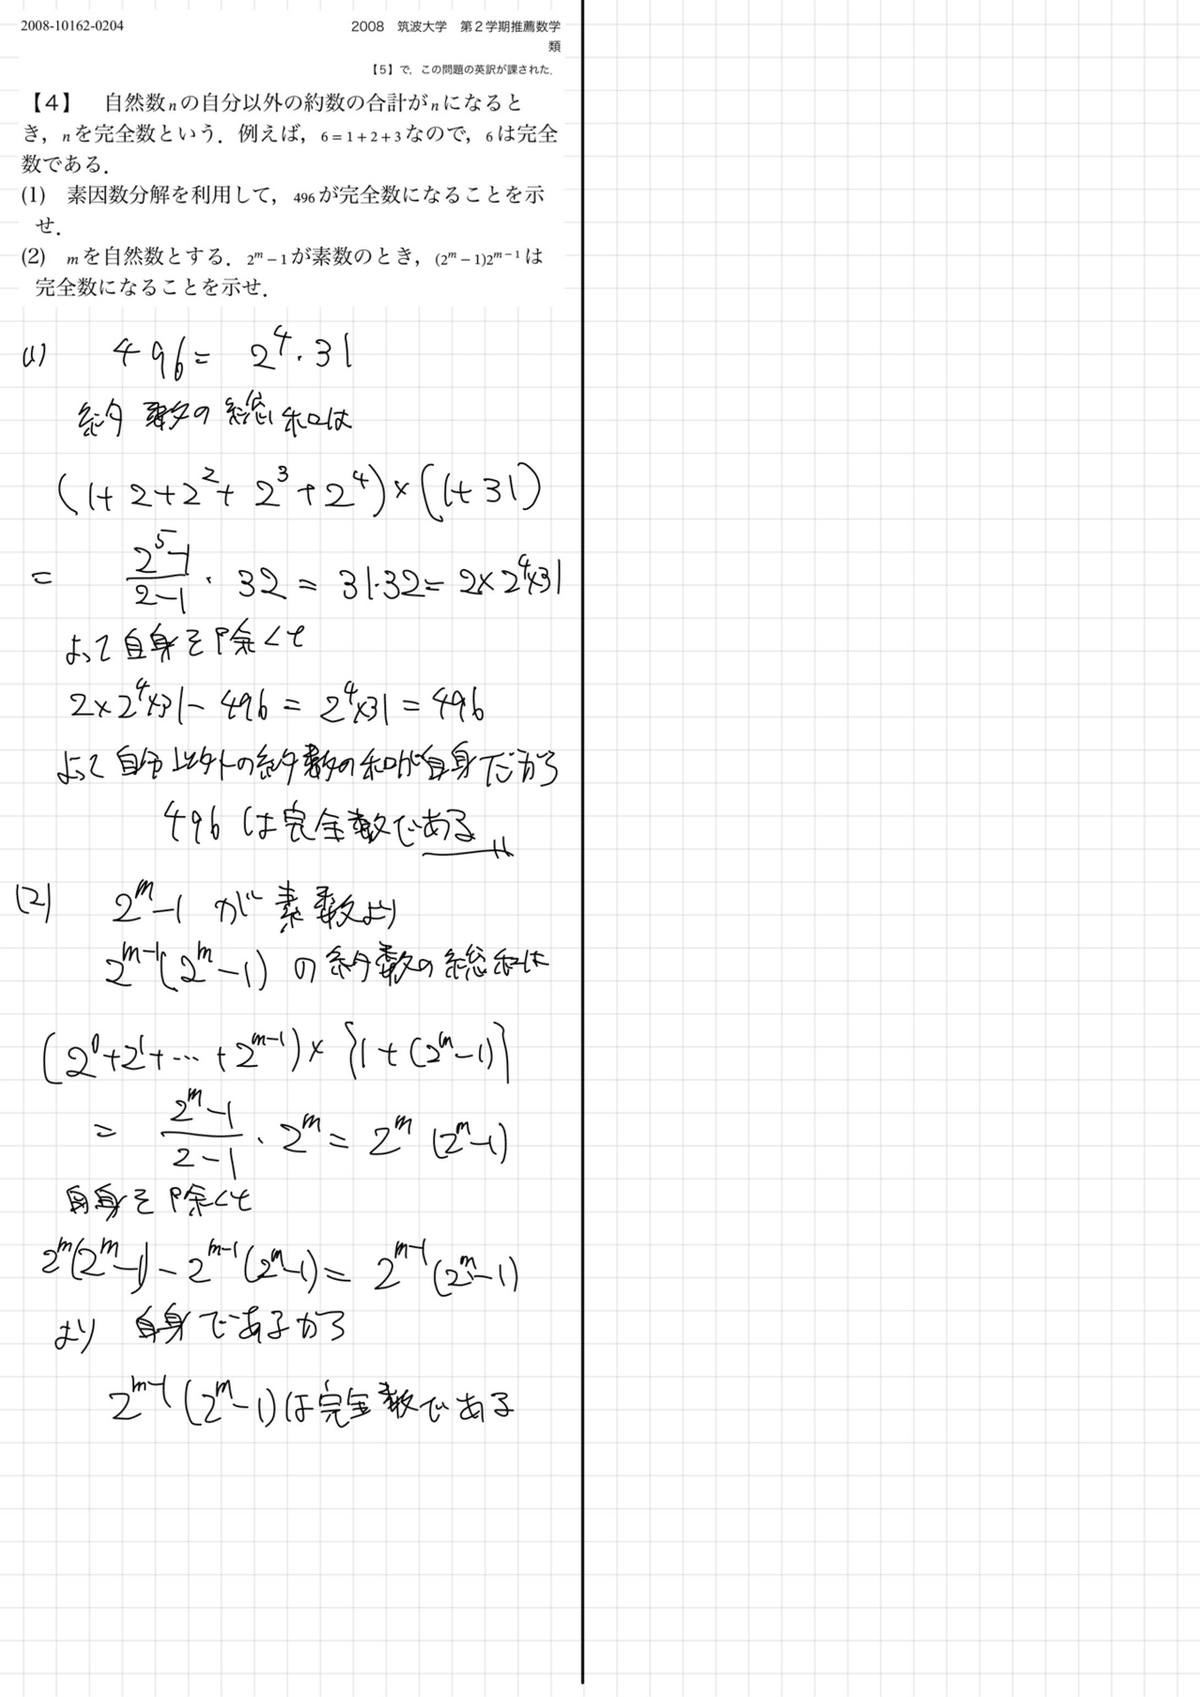 2008-10162-0204
2008　筑波大学　第２学期推薦数学
類
【5】で，この問題の英訳が課された．
【4】　自然数nの自分以外の約数の合計がnになると
き，nを完全数という．例えば，6=1+2+3なので，6は完全
数である．
(1)　素因数分解を利用して，496が完全数になることを示
せ．
(2)　mを自然数とする．2^m−1が素数のとき，(2^m−1)2^{m−1}は
完全数になることを示せ．
(1)　496= 2^4・31
約数の総和は
(1+2+2^2+2^3+2^4)×(1+31)
= \frac{2^5-1}{2-1}・32 = 31・32= 2×2^4×31
よって自身を除くと
2×2^4×31− 496 = 2^4×31 = 496
よって自分以外の約数の和が自身だから
496 は完全数である
(2)　2^m−1 が素数より
2^{m−1}(2^m−1) の約数の総和は
(2^0+2^1+…+2^{m−1})×{1+(2^m−1)}
= \frac{2^m−1}{2−1}・2^m= 2^m (2^m−1)
自身を除くと
2^m(2^m−1)−2^{m−1}(2^m−1)= 2^{m−1}(2^m−1)
より 自身であるから
2^{m−1}(2^m−1)は完全数である